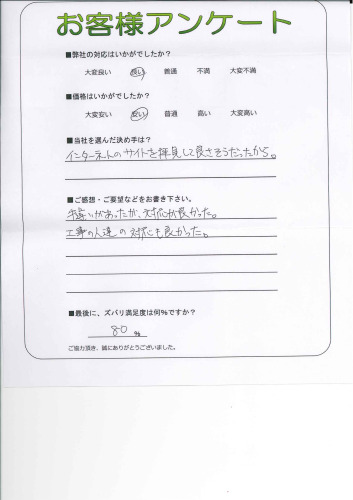 お客様アンケート
■弊社の対応はいかがでしたか?
大変良い 良い 普通 不満 大変不満
■価格はいかがでしたか?
大変安い 安い 普通 高い 大変高い
■当社を選んだ決め手は?
インターネットのサイトを拝見して良さそうだったから。
■ご感想・ご要望などをお書き下さい。
手違いがあったが、対応が良かった。
工事の人達の対応も良かった。
■最後に、ズバリ満足度は何%ですか?
80%
ご協力頂き、誠にありがとうございました。